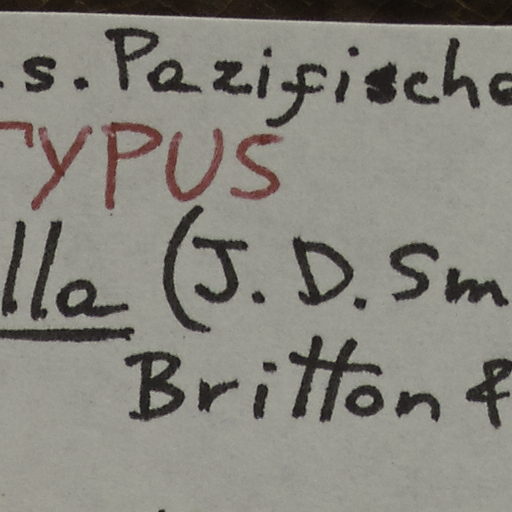 .s. Pazifische
TYPUS
lla (J. D. Sm
Britton &